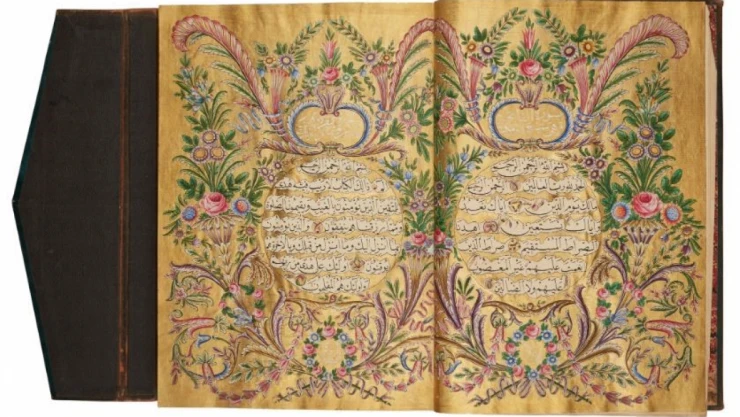 بسم الله الرحمن الرحيم
الحمد لله رب العالمين الرحمن
الرحيم مالك يوم الدين اياك نعبد
واياك نستعين اهدنا
الصراط المستقيم صراط الذين
انعمت عليهم غير المغضوب
عليهم ولا الضالين
بسم الله الرحمن الرحيم
الم ذلك الكتاب لا ريب فيه هدى
للمتقين الذين يؤمنون بالغيب ويقيمون الصلوة
ومما رزقناهم ينفقون والذين يؤمنون
بما انزل اليك وما انزل من قبلك وبالاخرة هم
يوقنون اولئك على هدى من ربهم
واولئك هم المفلحون